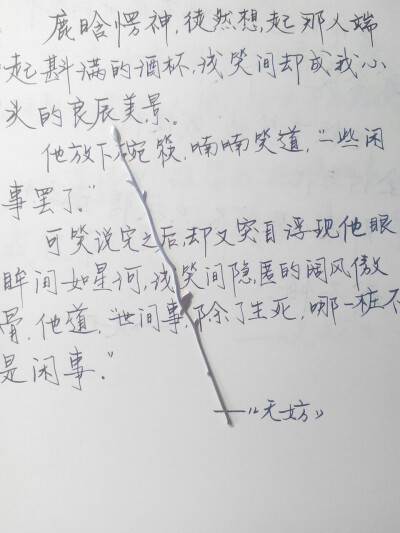 鹿晗愣神,徒然想起那人端
起斟满的酒杯,浅笑间却成我心
头的良辰美景。
他放下碗筷,喃喃笑道,"一些闲
事罢了。"
可笑说完之后却又突自浮现他眼
眸间如星河,浅笑间隐匿的阔风傲
骨,他道,"世间事,除了生死,哪一桩不
是闲事。"
——《无妨》